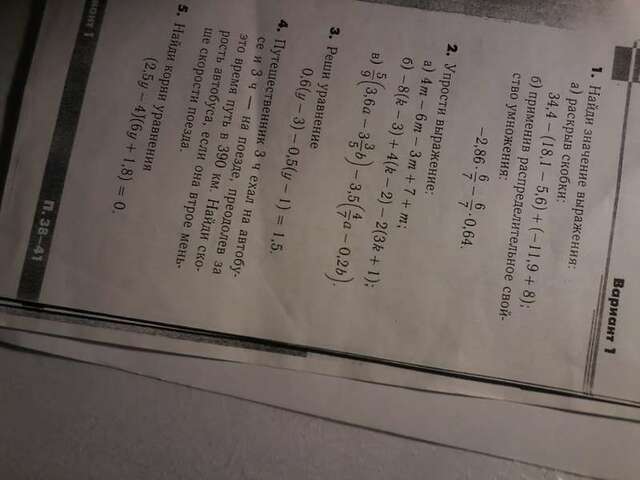 Вариант 1
1. Найди значение выражения:
а) раскрыв скобки:
34,4 − (18,1 − 5,6) + (−11,9 + 8);
б) применив распределительное свой-
ство умножения:
−2,86 · 6/7 − 6/7 · 0,64.
2. Упрости выражение:
а) 4m − 6m − 3m + 7 + m;
б) −8(k − 3) + 4(k − 2) − 2(3k + 1);
в) 5/9(3,6a − 3 3/5 b) − 3,5(4/7 a − 0,2b).
3. Реши уравнение
0,6(y − 3) − 0,5(y − 1) = 1,5.
4. Путешественник 3 ч ехал на автобу-
се и 3 ч — на поезде, преодолев за
это время путь в 390 км. Найди ско-
рость автобуса, если она втрое мень-
ше скорости поезда.
5. Найди корни уравнения
(2,5y − 4)(6y + 1,8) = 0.
П. 38–41
иант 1